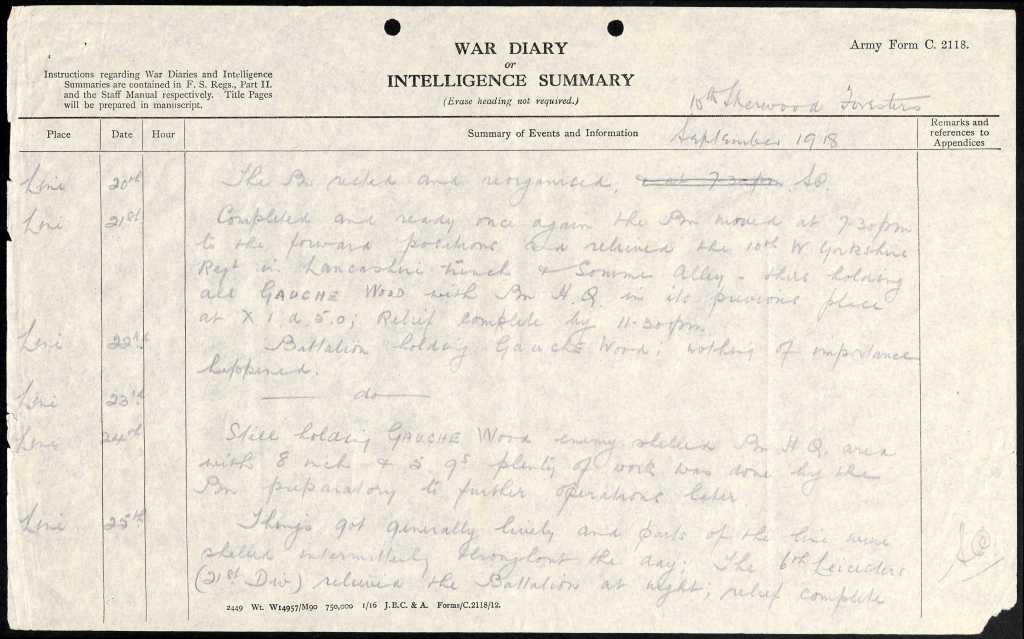 WAR DIARY
or
INTELLIGENCE SUMMARY
(Erase heading not required.)
Army Form C. 2118.
Instructions regarding War Diaries and Intelligence
Summaries are contained in F. S. Regs., Part II.
and the Staff Manual respectively. Title Pages
will be prepared in manuscript.
10th Sherwood Foresters
September 1918
Place Date Hour Summary of Events and Information Remarks and
references to
Appendices
Line 20th The Bn rested and reorganised, & at 7.30pm
Line 21st Completed and ready once again the Bn moved at 7.30pm
to the forward positions and relieved the 10th W Yorkshire
Regt in Lancashire trench & Somme Alley - thus holding
all GAUCHE WOOD with Bn H.Q. in its previous place
at X 1 d 5.0; Relief complete by 11.30pm.
Line 22nd Battalion holding GAUCHE Wood; nothing of importance
happened.
Line 23rd do
Line 24th Still holding GAUCHE Wood enemy shelled Bn H.Q. area
with 8 inch & 5.9s plenty of work was done by the
Bn preparatory to further operations later
Line 25th Things got generally lively and parts of the line were
shelled intermittently throughout the day; The 6th Leicesters
(21st Div) relieved the Battalion at night; relief complete
2449 Wt. W14957/M90 750,000 1/16 J.B.C. & A. Forms/C.2118/12.